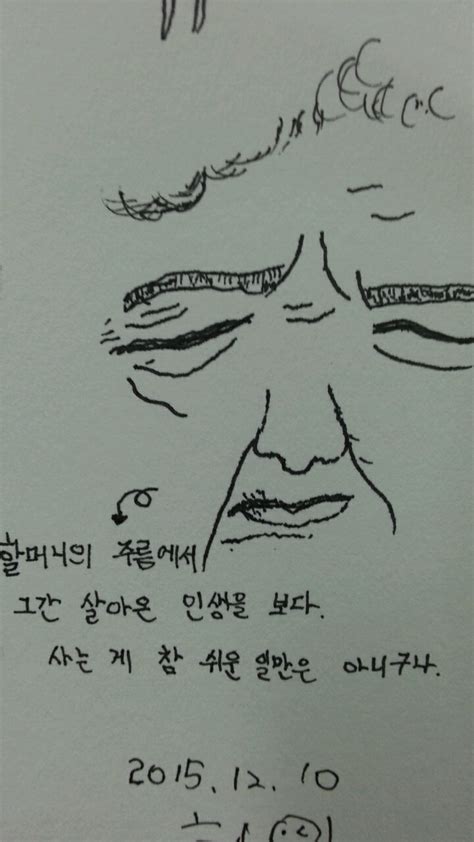 할머니의 주름에서
그간 살아온 인생을 보다.
사는 게 참 쉬운 일만은 아니구나.
2015.12.10